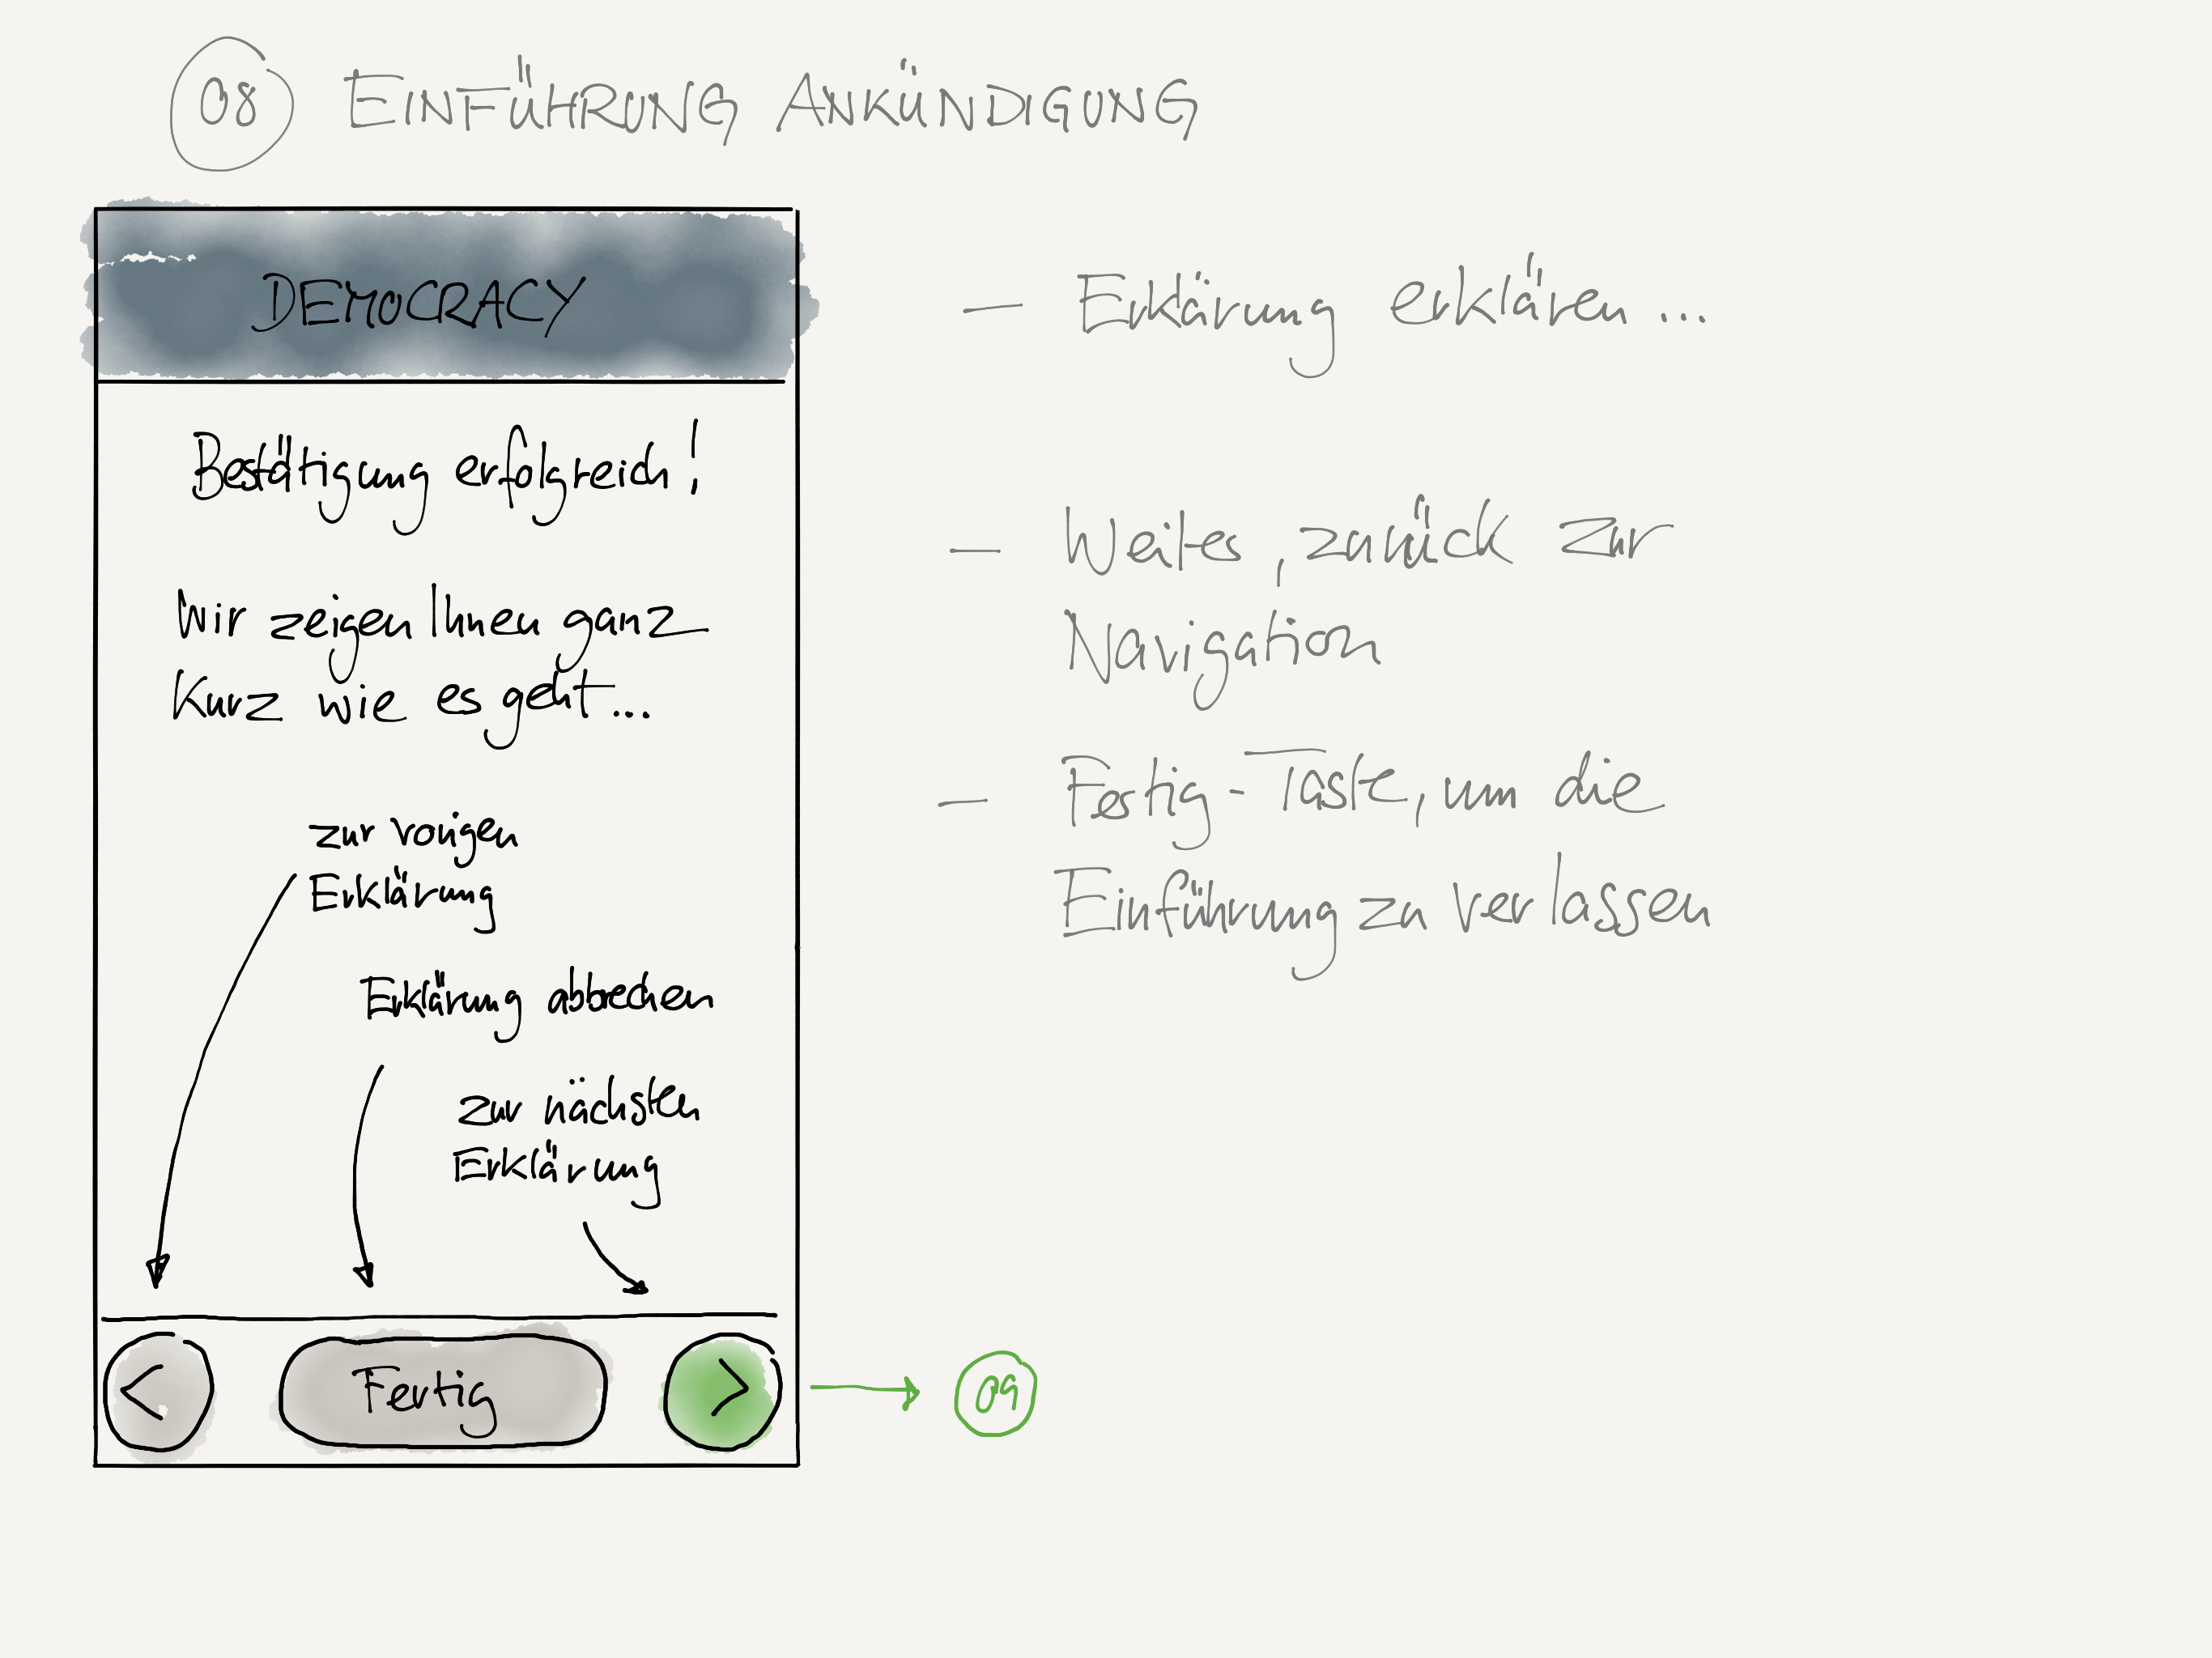 08 EINFÜHRUNG ANKÜNDIGUNG
DEMOCRACY
Bestätigung erfolgreich!
Wir zeigen Ihnen ganz
Kurz wie es geht...
zur vorigen
Erklärung
Erklärung abbrechen
zur nächsten
Erklärung
< Fertig >
09
— Erklärung erklären...
— Weiter, zurück zur
Navigation
— Fertig-Taste, um die
Einführung zu verlassen